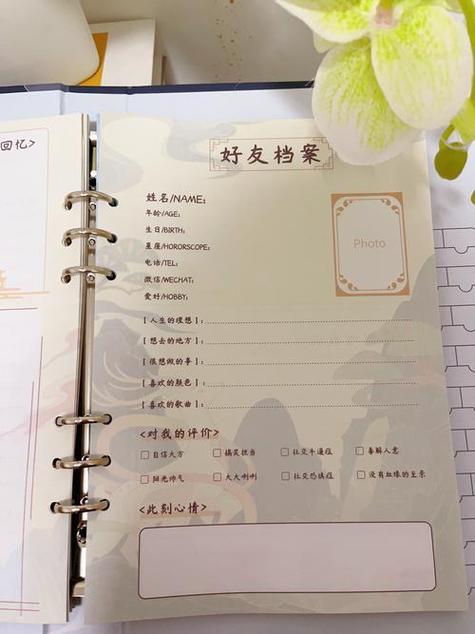 回忆>
好友档案
姓名/NAME:
年龄/AGE:
生日/BIRTH:
星座/HORORSCOPE:
电话/TEL:
微信/WECHAT:
爱好/HOBBY:
Photo
【人生的理想】:
【想去的地方】:
【很想做的事】:
【喜欢的颜色】:
【喜欢的歌曲】:
<对我的评价>
自信大方 搞笑担当 社交牛逼症 善解人意
阳光帅气 大大咧咧 社交恐惧症 没有血缘的至亲
<此刻心情>